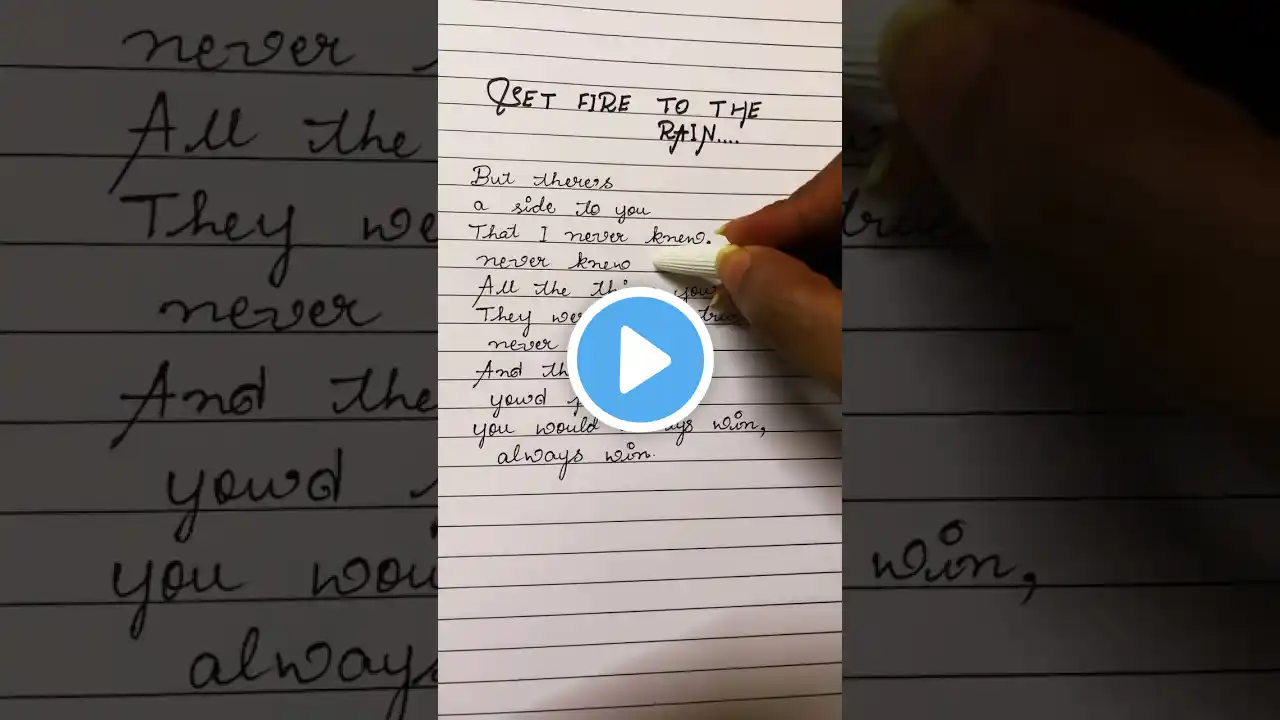 SET FIRE TO THE
RAIN....
But theres
a side to you
That I never knew.
never knew
All the
They
never
And
you'd
you would win,
always win.